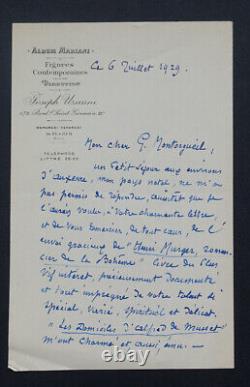 ALBUM MARIANI
Figures
Contemporaines
Joseph Uzanne
172, Boul.d Saint-Germain
TÉLÉPHONE
LITTRÉ
Ce 6 Juillet 1929.
Mon cher G. Montorgueil,
un Petit séjour aux environs
d'auxerre, mon pays natal, ne m'a
pas permis de répondre, aussitôt que je
l'aurais voulu, à votre charmante lettre,
et de vous remercier, de tout cœur, de l'
envoi gracieux de "Henri Murger, roman-
cier de la Bohème" livre du Plus
vif intérêt, précieusement Documenté
et tout imprégné de votre talent si
spécial, varié, spirituel et délicat.
"Les Domiciles d'alfred de Musset"
m'ont charmé et aussi ému. —